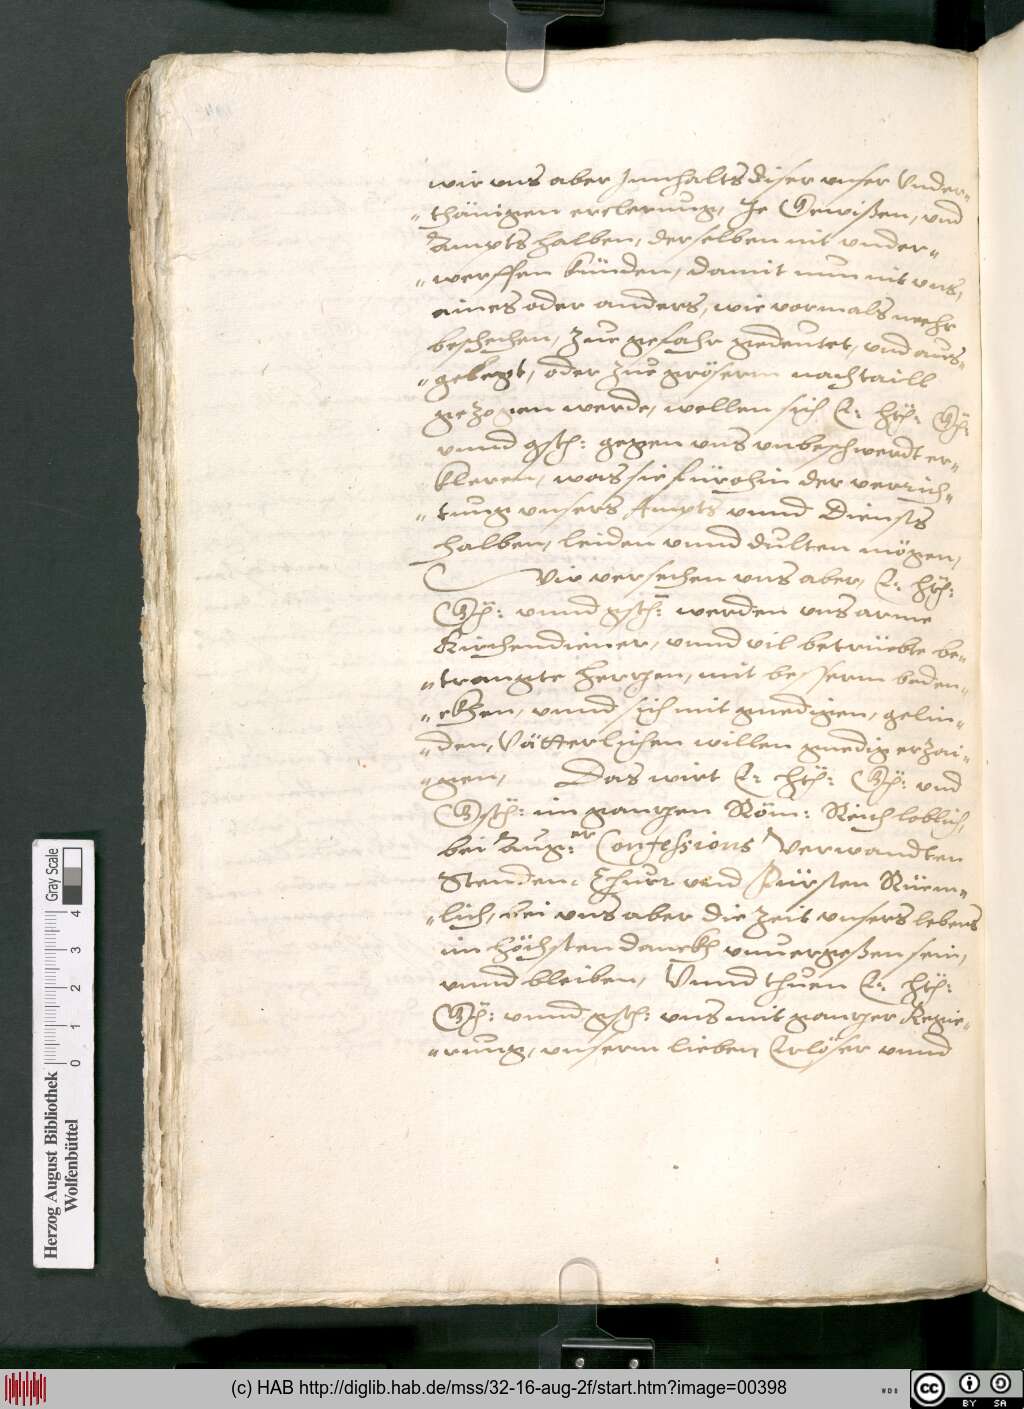 wir vns aber Innhalts diser vnser Vnder„
„thänigen erclerung, Je Gewißen, vnd
Ampts halben, derselben nit vnder„
„werffen künden, damit nun nit vns,
aines oder anders, wie vormals mehr
beschehen, zue gefahr gedeutet, vnd aus„
„gelegt, oder zue gröserm nachtaill
gezogen werde, wellen sich E: htt: Gh:
vnnd gsth: gegen vns vnbeschwerdt er„
kleren, was sie fürohin der verrich„
„tung vnsers Ampts vnnd Diensts
halben, leiden vnnd dulten mögen,
Wir versehen vns aber, E: htt:
Gh: vnnd gsth: werden vns arme
Kirchendiener, vnnd vil betrüebte be„
„trangte hertzen, mit besserm beden„
„ckhen, vnnd sich mit gnedigen, gelin„
„den, Vätterlichen willen gnedig erzai„
„gen, Das wirt E: htt: Gh: vnd
Gsth: im gantzen Röm: Reich loblich,
bei Aug:er Confessions Verwandten
Stenden, Churr vnd Fürsten Rüem„
„lich, bei vns aber die zeit vnsers lebens
im höchsten danckh vnuergeßen sein,
vnnd bleiben, Vnnd thuen E: htt:
Gh: vnnd gsth: vns mit gantzer Regie„
„rung, vnserm lieben Erlöser vnnd
Herzog August Bibliothek
Wolfenbüttel
Gray Scale
0 1 2 3 4
(c) HAB http://diglib.hab.de/mss/32-16-aug-2f/start.htm?image=00398
WDB
cc BY SA